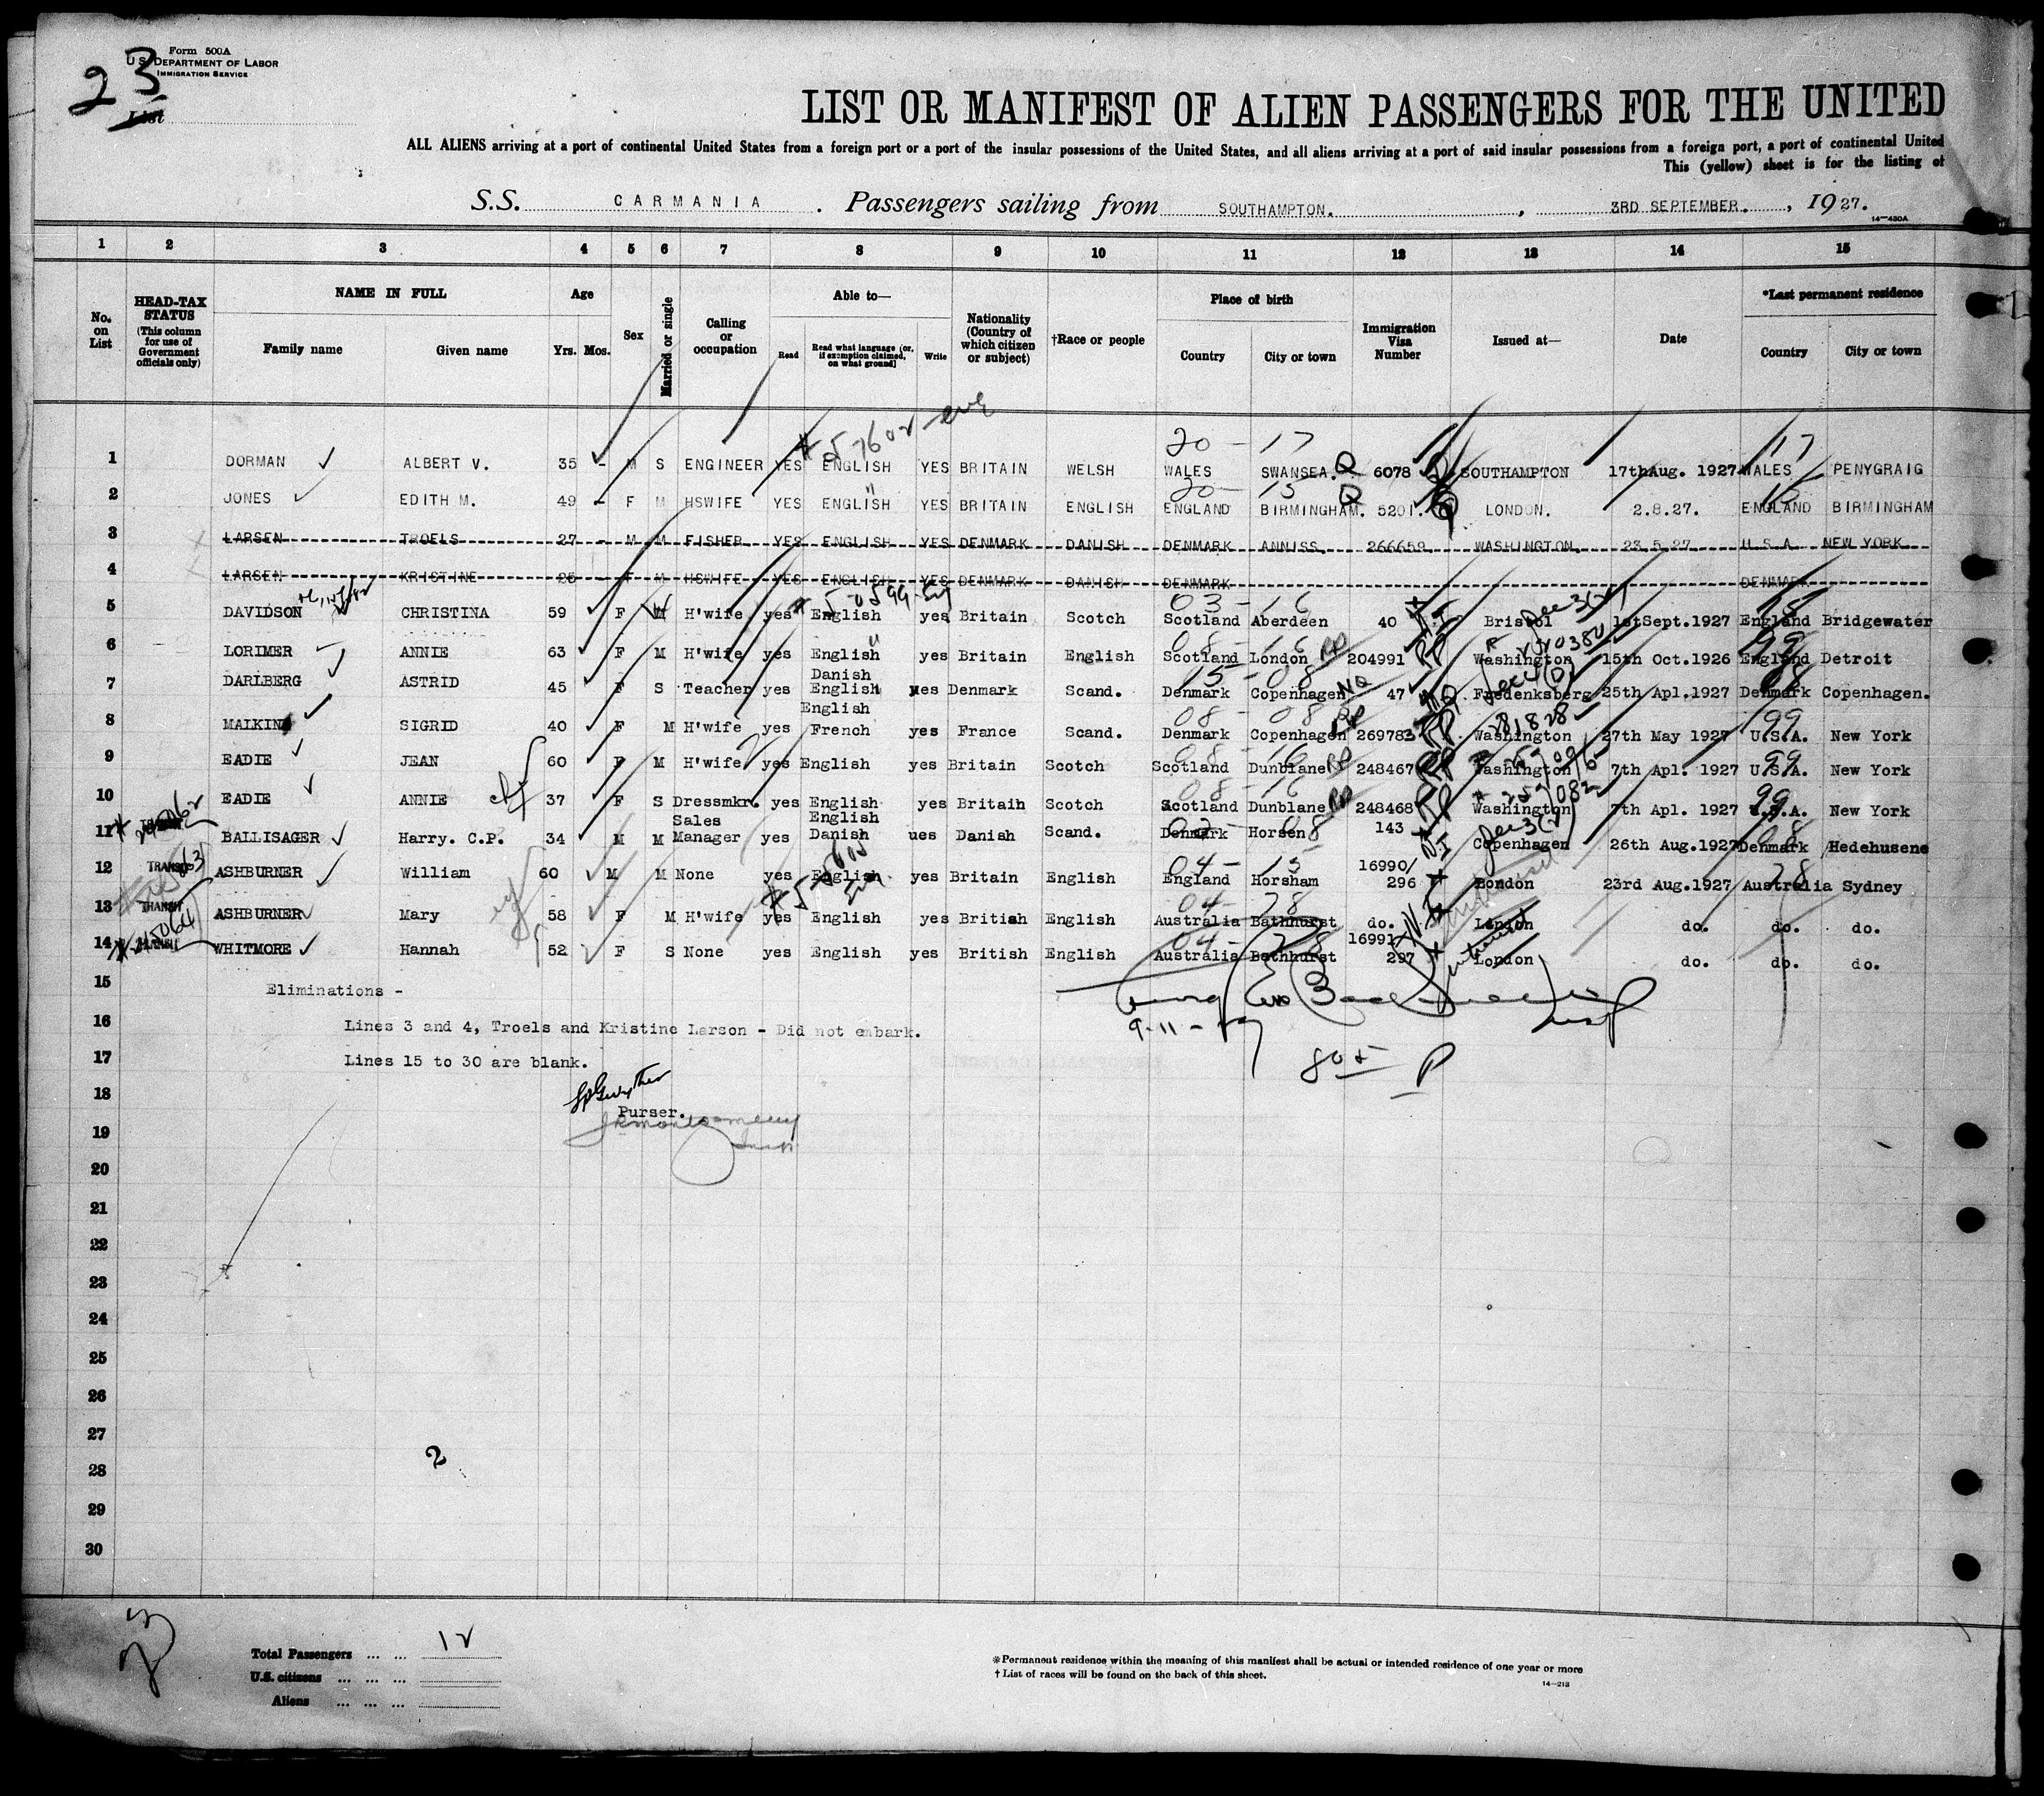 Form 500A
U.S. DEPARTMENT OF LABOR
IMMIGRATION SERVICE
23
List
LIST OR MANIFEST OF ALIEN PASSENGERS FOR THE UNITED
ALL ALIENS arriving at a port of continental United States from a foreign port or a port of the insular possessions of the United States, and all aliens arriving at a port of said insular possessions from a foreign port, a port of continental United
This (yellow) sheet is for the listing of
S.S. CARMANIA. Passengers sailing from SOUTHAMPTON., 3RD SEPTEMBER., 1927.
14—430A
1 2 3 4 5 6 7 8 9 10 11 12 13 14 15
No. on List
HEAD-TAX STATUS (This column for use of Government officials only)
NAME IN FULL
Family name Given name
Age
Yrs. Mos.
Sex
Married or single
Calling or occupation
Able to—
Read Read what language [or, if exemption claimed, on what ground] Write
Nationality (Country of which citizen or subject)
†Race or people
Place of birth
Country City or town
Immigration Visa Number
Issued at—
Date
*Last permanent residence
Country City or town
20 - 17 17
1 DORMAN ALBERT V. 35 - M S ENGINEER YES ENGLISH YES BRITAIN WELSH WALES SWANSEA. Q 6078 SOUTHAMPTON 17thAug. 1927 WALES PENYGRAIG
20 - 15 15
2 JONES EDITH M. 49 - F M HSWIFE YES ENGLISH YES BRITAIN ENGLISH ENGLAND BIRMINGHAM. Q 5201. LONDON. 2.8.27. ENGLAND BIRMINGHAM
3 LARSEN TROELS 27 - M M FISHER YES ENGLISH YES DENMARK DANISH DENMARK ANNISS. 266659 WASHINGTON. 23.5.27 U.S.A. NEW YORK
4 LARSEN KRISTINE 25 F M HSWIFE YES ENGLISH YES DENMARK DANISH DENMARK DENMARK
03 - 16
5 DAVIDSON CHRISTINA 59 F M H'wife yes English yes Britain Scotch Scotland Aberdeen 40 Bristol 1stSept.1927 England Bridgewater
08 - 16 99
6 LORIMER ANNIE 63 F M H'wife yes English yes Britain English Scotland London 204991 Washington 15th Oct.1926 England Detroit
15 - 08
7 DARLBERG ASTRID 45 F S Teacher yes Danish English yes Denmark Scand. Denmark Copenhagen NQ 47 Fredenksberg 25th Apl.1927 Denmark Copenhagen.
08 - 08 99
8 MALKIN SIGRID 40 F M H'wife yes English French yes France Scand. Denmark Copenhagen RP 269783 Washington 27th May 1927 U.S.A. New York
08 - 16 99
9 EADIE JEAN 60 F M H'wife yes English yes Britain Scotch Scotland Dunblane RP 248467 Washington 7th Apl. 1927 U.S.A. New York
08 - 16 99
10 EADIE ANNIE 37 F S Dressmkr. yes English yes Britain Scotch Scotland Dunblane RP 248468 Washington 7th Apl. 1927 U.S.A. New York
11 BALLISAGER Harry. C.P. 34 M M Sales Manager yes English Danish ues Danish Scand. Denmark Horsen 143 Copenhagen 26th Aug.1927 Denmark Hedehusene
04 - 15 28
12 TRANSIT ASHBURNER William 60 M M None yes English yes Britain English England Horsham 16990/296 London 23rd Aug.1927 Australia Sydney
04 - 28
13 TRANSIT ASHBURNER Mary 58 F M H'wife yes English yes British English Australia Bathhurst do. London do. do. do.
04 - 28
14 TRANSIT WHITMORE Hannah 52 F S None yes English yes British English Australia Bathhurst 16991/297 London do. do. do.
15 Eliminations -
16 Lines 3 and 4, Troels and Kristine Larson - Did not embark.
9-11-27
17 Lines 15 to 30 are blank.
18
Purser.
19
20
21
22
23
24
25
26
27
2
28
29
30
23
Total Passengers ... ... 12
U.S. citizens ... ... ...
Aliens ... ... ...
*Permanent residence within the meaning of this manifest shall be actual or intended residence of one year or more
† List of races will be found on the back of this sheet.
14—213